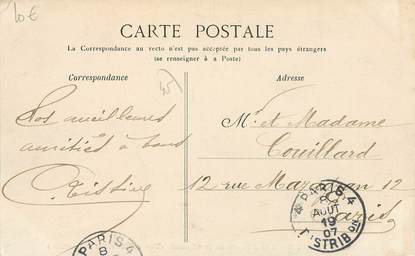 10€
CARTE POSTALE
La Correspondance au recto n'est pas acceptée par tous les pays étrangers
(se renseigner à a Poste)
Correspondance
Adresse
Nos meilleures
amitiés à tous
Mr. et Madame
Couillard
12 rue 12
Paris
PARIS. 4
8
AOUT
19
07
DISTRIB ON
PARIS 4
8